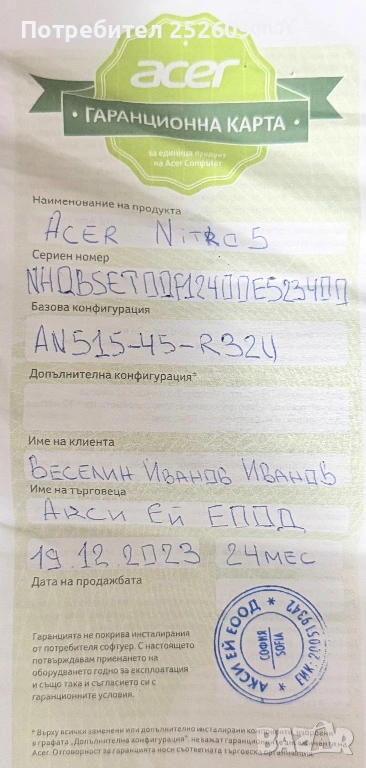 Потребител 25260
acer
ГАРАНЦИОННА КАРТА
за единица продукт
на Acer Computer
Наименование на продукта
ACER Nitro 5
Сериен номер
NHQBSET00P12400E523400
Базова конфигурация
AN515-45-R32U
Допълнителна конфигурация*
Име на клиента
ВЕСЕЛИН ИВАНОВ ИВАНОВ
Име на търговеца
АКСИ ЕЙ ЕООД
19.12.2023 24 МЕС
Дата на продажбата
Гаранцията не покрива инсталирания
от потребителя софтуер. С настоящето
потвърждавам приемането на
оборудването годно за експлоатация
и също така и съгласието си с
гаранционните условия.
АКСИ ЕЙ ЕООД
СОФИЯ
SOFIA
ЕИК: 2005119342
* Върху всички заменени или допълнително инсталирани
в графата „Допълнителна конфигурация", не важат гаранционните на
Acer. Отговорност за гаранцията носи съответната търговска организация.
BAZAR